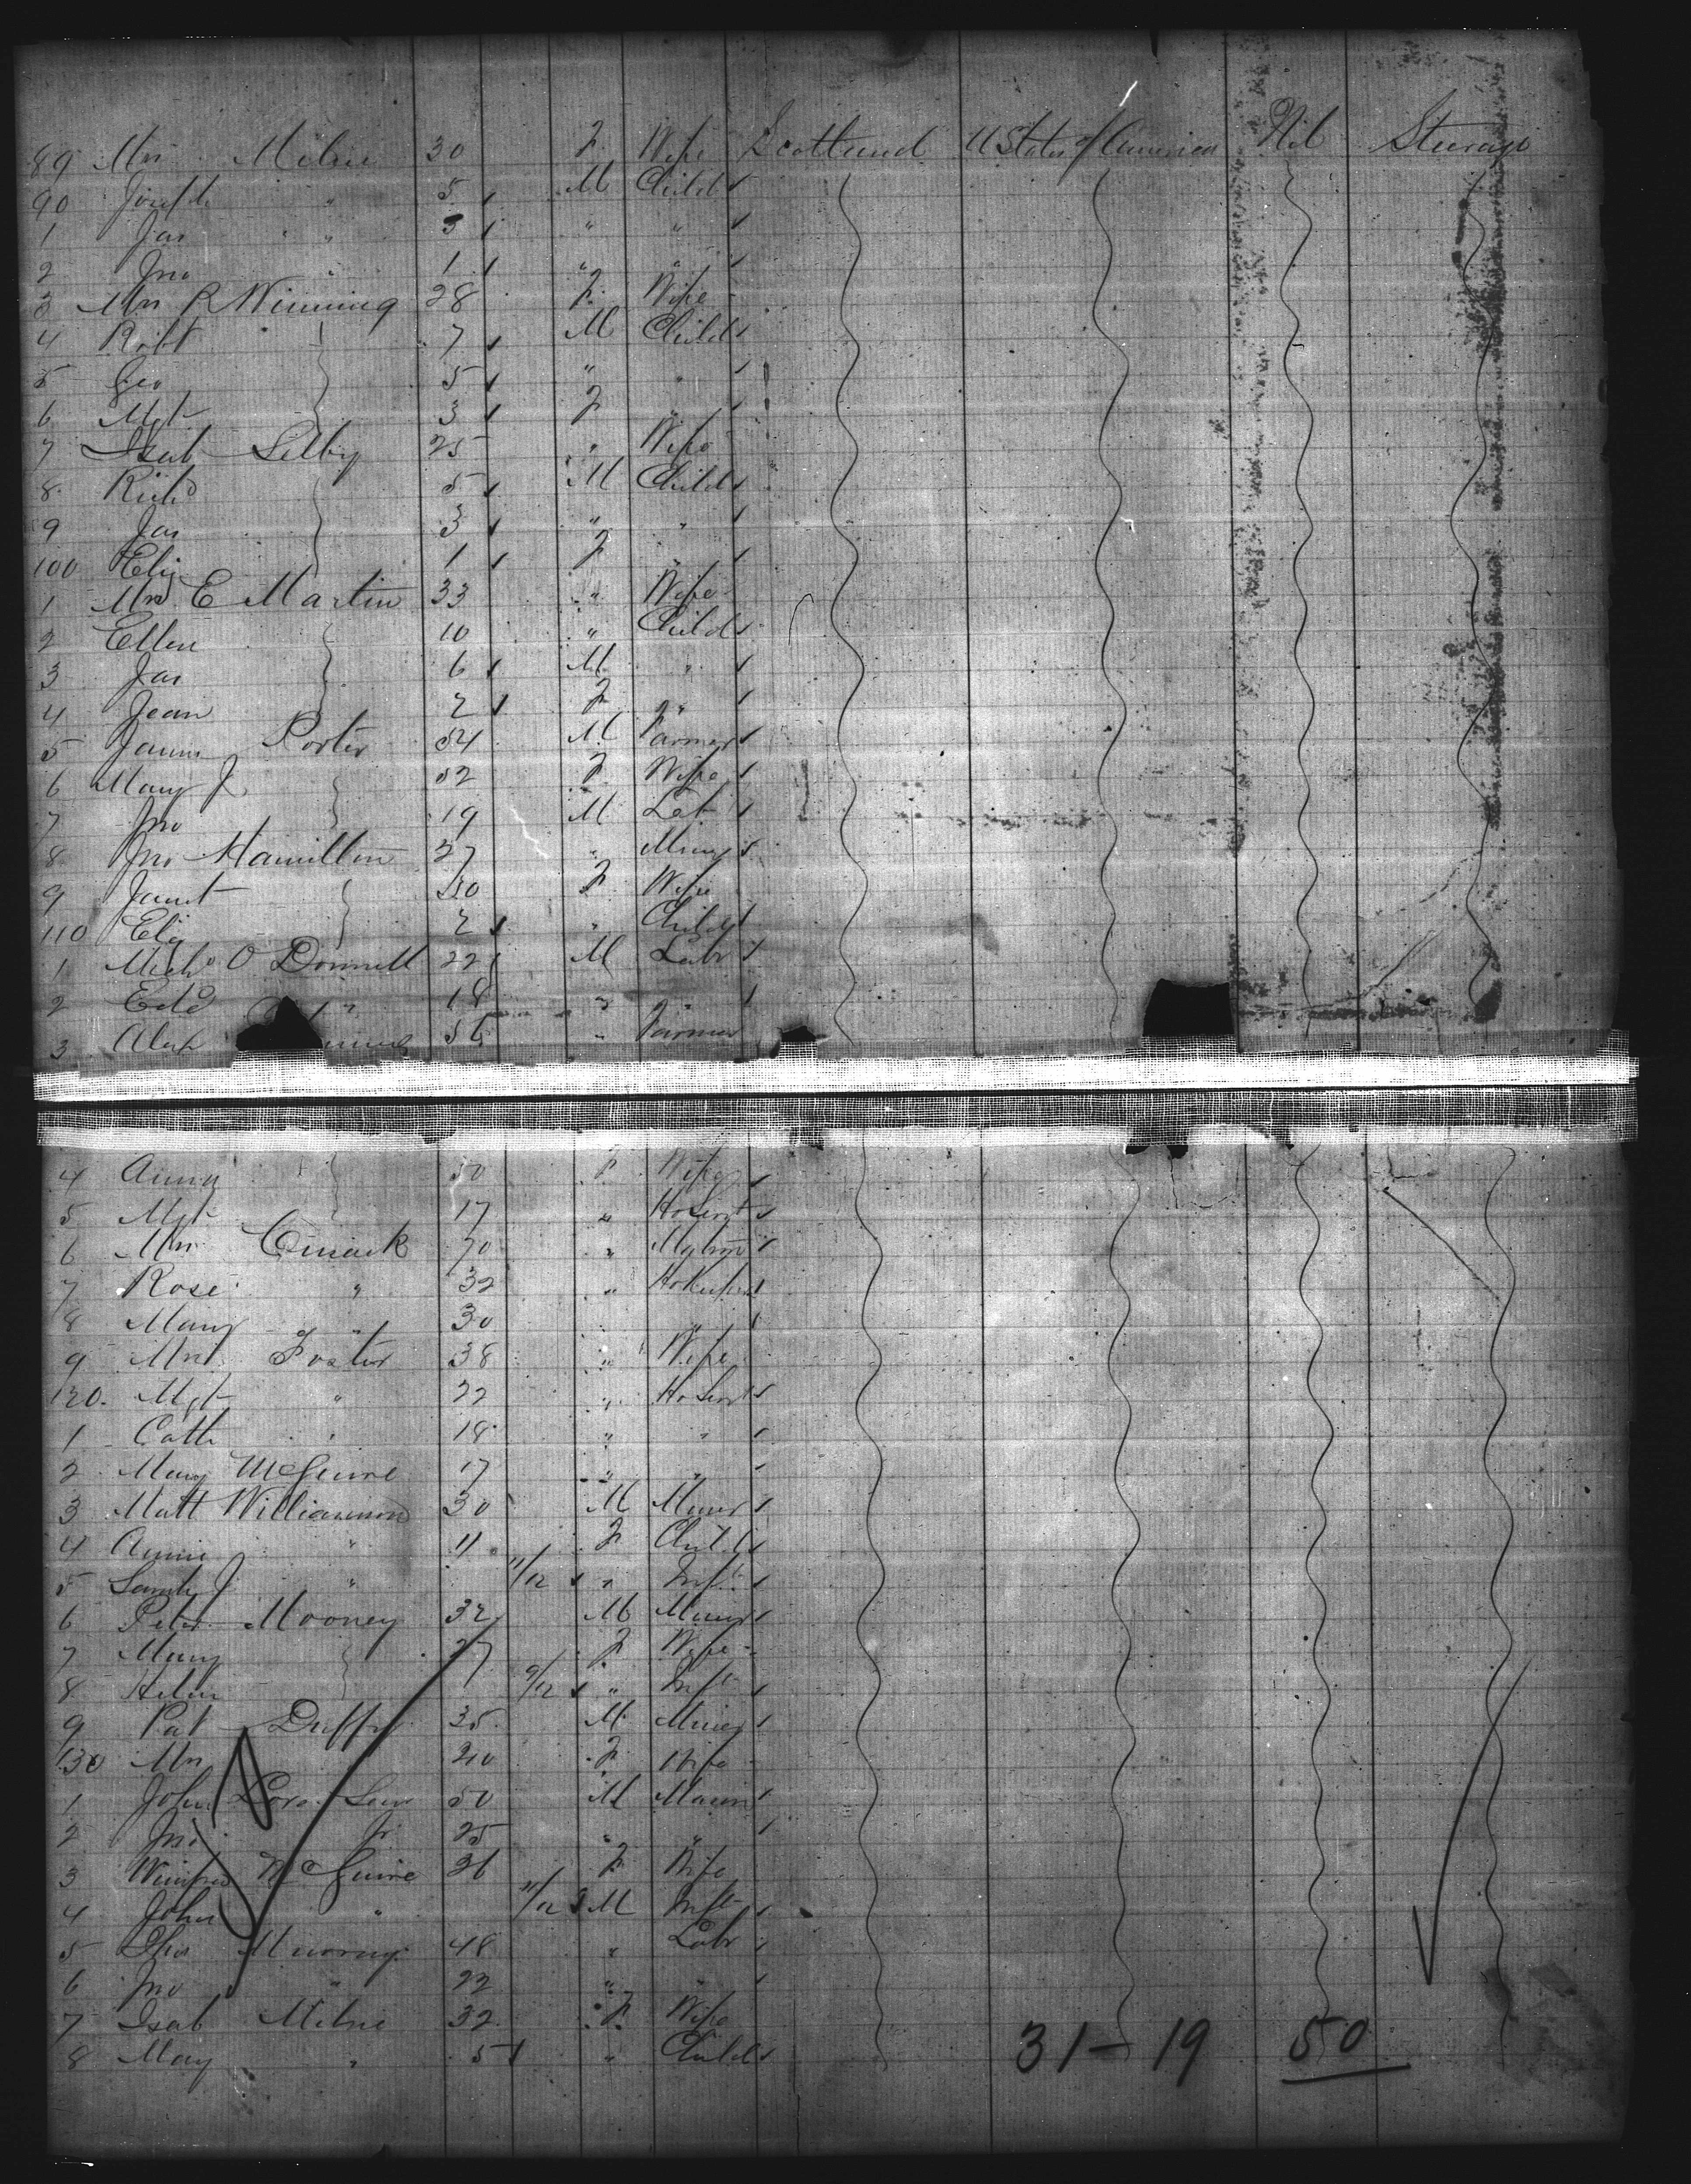 89 Mrs Milne 30 F Wife Scotland U States of America Nil Steerage
90 Joseph " 5 M Child
1 Jas " " 3 " "
2 Jno " 1 " "
3 Mrs R Winning 28 F Wife
4 Robt 7 M Child
5 Geo 5 " "
6 Mgt 3 F "
7 Isab Selby 25 " Wife
8 Richd 5 M Child
9 Jas 3 " "
100 Eliz 1 F "
1 Mrs E Martin 33 " Wife
2 Ellen 10 " Child
3 Jas 6 M "
4 Jean 2 F "
5 James Porter 54 M Farmer
6 Mary J 52 F Wife
7 Jno 19 M Lab
8 Jno Hamilton 27 " Miner
9 Janet 30 F Wife
110 Eliz 2 " Child
1 Michl O Donnell 22 M Labr
2 Edd " 18 " "
3 Alex 56 " Farmer
4 Anny 50 F Wife
5 Mgt 17 " Ho Servt
6 Mrs 70 "
7 Rose " 32 " Ho Keeper
8 Mary " 30 " "
9 Mrs Foster 38 " Wife
120 Mgt " 22 " Ho Servt
1 Cath " 18 " "
2 Mary McGuire 17 " "
3 Matt Williamson 30 M Miner
4 Annie " 11 F Child
5 Sarah J " 11/12 " Inft
6 Peter Mooney 32 M Miner
7 Mary 27 F Wife
8 Helen 9/12 " Inft
9 Pat Duffy 35 M Miner
130 Mrs " 40 F Wife
1 John Senr 50 M Mason
2 Jno Jr 25 " "
3 Winifred McGuire 26 F Wife
4 John " 11/12 M Inft
5 Thos Murray 48 " Labr
6 Jno " 22 " "
7 Isab Milne 32 F Wife
8 May " 5 " Child
31 - 19 50